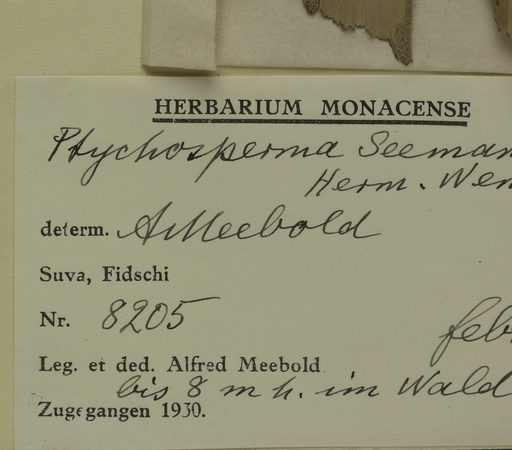 HERBARIUM MONACENSE
Ptychosperma Seeman
Herm. Wen
determ. A Meebold
Suva, Fidschi
Nr. 8205
feb.
Leg. et ded. Alfred Meebold
bis 8 m h. im Wald
Zugegangen 1930.